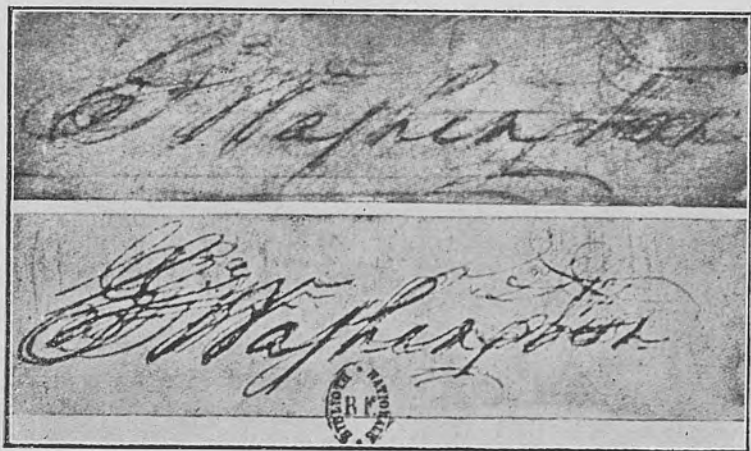 G Washington
G Washington
BIBLIOTH · NATIONALE
R F